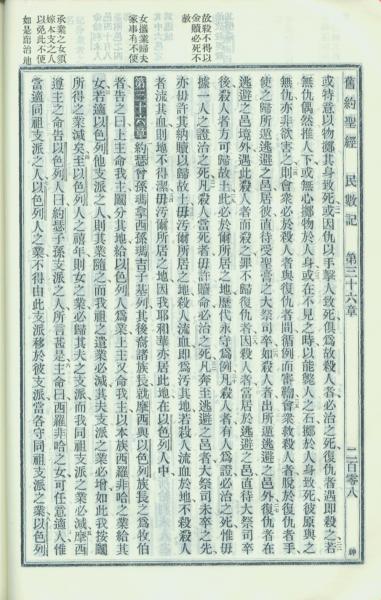 舊約聖經 民數記 第三十六章 二百零八
故殺不得以
金贖必死不
赦
女攝業歸夫
家事有不便
承業之女須
嫁本支之人
以免此不便
如是而治地
或特意以物擲其身致死或因仇以手擊人致死俱爲故殺人者必治之死復仇者遇即殺之若
無仇偶然推人下或無心擲物於人身或在不見之時以能斃人之石擲於人身致死彼原與之
無仇亦非欲害之則會衆必於殺人者與復仇者間循例而審鞫會衆救殺人者脫於復仇者手
使之歸所遁逃避之邑居彼直待受聖膏之大祭司卒如殺人者出所遁逃避之邑外復仇者在
逃避之邑境外遇此殺人者而殺之則不歸復仇者因殺人者當居於逃避之邑直待大祭司卒
後殺人者方可歸故土此必於爾所居之地歷代永守爲例凡殺人者有人爲證必治之死惟毋
據一人之證治之死凡殺人當死者毋許贖命必治之死凡奔至逃避之邑者大祭司未卒之先
亦毋許其納贖以歸故土毋污爾所居之地殺人流血即爲污其地若殺人流血於地不殺殺人
者流其血則地不得潔毋污爾所居之地因我耶和華亦居此地在以色列人中
第三十六章 約瑟曾孫瑪拿西孫瑪吉子基列其後裔諸族長就摩西與以色列族長之爲牧伯
者告之曰上主命我主鬮分其地給以色列人爲業上主又命我主以本族西羅非哈之業給其
女若適以色列他支派人則其業隨之而我祖之遺業必減其夫支派之業必增如此我按鬮
所得之業減矣至以色列人之禧年則女之業必歸其夫之支派而我同祖支派之業必減摩西
遵主之命告以色列人曰約瑟子孫支派之人所言甚是主命曰西羅非哈之女可任意適人惟
當適同祖支派之人以色列人之業不得由此支派移於彼支派當各守同祖支派之業以色列